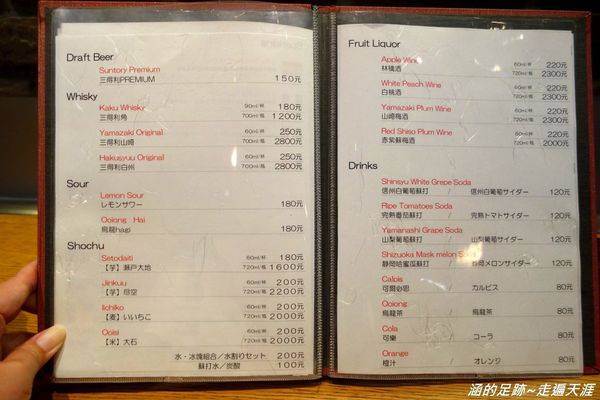 Draft Beer
Suntory Premium
三得利PREMIUM 150元
Whisky
Kaku Whisky 90ml/杯 180元
三得利角 700ml/瓶 1200元
Yamazaki Original 60ml/杯 250元
三得利山崎 700ml/瓶 2800元
Hakusyuu Original 60ml/杯 250元
三得利白州 700ml/瓶 2800元
Sour
Lemon Sour
レモンサワー 180元
Ooiong Hai
烏龍hagi 180元
Shochu
Setodaiti 60ml/杯 180元
【芋】瀬戸大地 720ml/瓶 1600元
Jinkuu 60ml/杯 220元
【芋】尽空 720ml/瓶 2200元
Iichiko 60ml/杯 200元
【麦】いいちこ 720ml/瓶 2000元
Ooisi 60ml/杯 200元
【米】大石 720ml/瓶 2000元
水・冰塊組合／水割りセット 200元
蘇打水／炭酸 100元
Fruit Liquor
Apple Wine 60ml/杯 220元
林檎酒 720ml/瓶 2300元
White Peach Wine 60ml/杯 220元
白桃酒 720ml/瓶 2300元
Yamazaki Plum Wine 60ml/杯 220元
山崎梅酒 720ml/瓶 2300元
Red Shiso Plum Wine 60ml/杯 220元
赤紫蘇梅酒 720ml/瓶 2000元
Drinks
Shinsyu White Grepe Soda
信州白葡萄蘇打 / 信州白葡萄サイダー 120元
Ripe Tomatoes Soda
完熟番茄蘇打 / 完熟トマトサイダー 120元
Yamanashi Grape Soda
山梨葡萄蘇打 / 山梨葡萄サイダー 120元
Shizuoka Mask melon Soda
静岡哈蜜瓜蘇打 / 静岡メロンサイダー 120元
Calpis
可爾必思 / カルピス 80元
Ooiong
烏龍茶 / 烏龍茶 80元
Cola
可樂 / コーラ 80元
Orange
橙汁 / オレンジ 80元
涵的足跡~走遍天涯